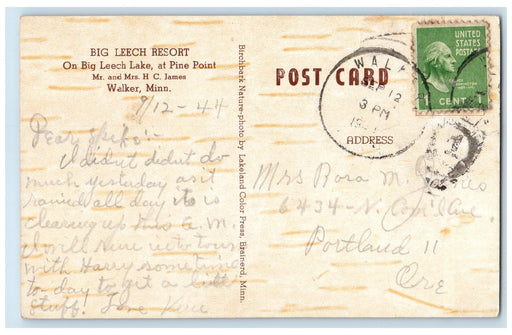 BIG LEECH RESORT
On Big Leech Lake, at Pine Point
Mr. and Mrs. H C. James
Walker, Minn.
9/12-44
didnt didnt do
much yesterday as it
rained all day its is
clearing up this A.M.
I will have to
with Harry
to day to get a little
stuff. Love
Birchbark Nature-photo by Lakeland Color Press, Brainerd, Minn.
POST CARD
ADDRESS
WALK
SEP 12
3 PM
UNITED
STATES
POSTAGE
1 CENT 1
Mrs Rosa M.
6434-N.
Portland 11
Ore